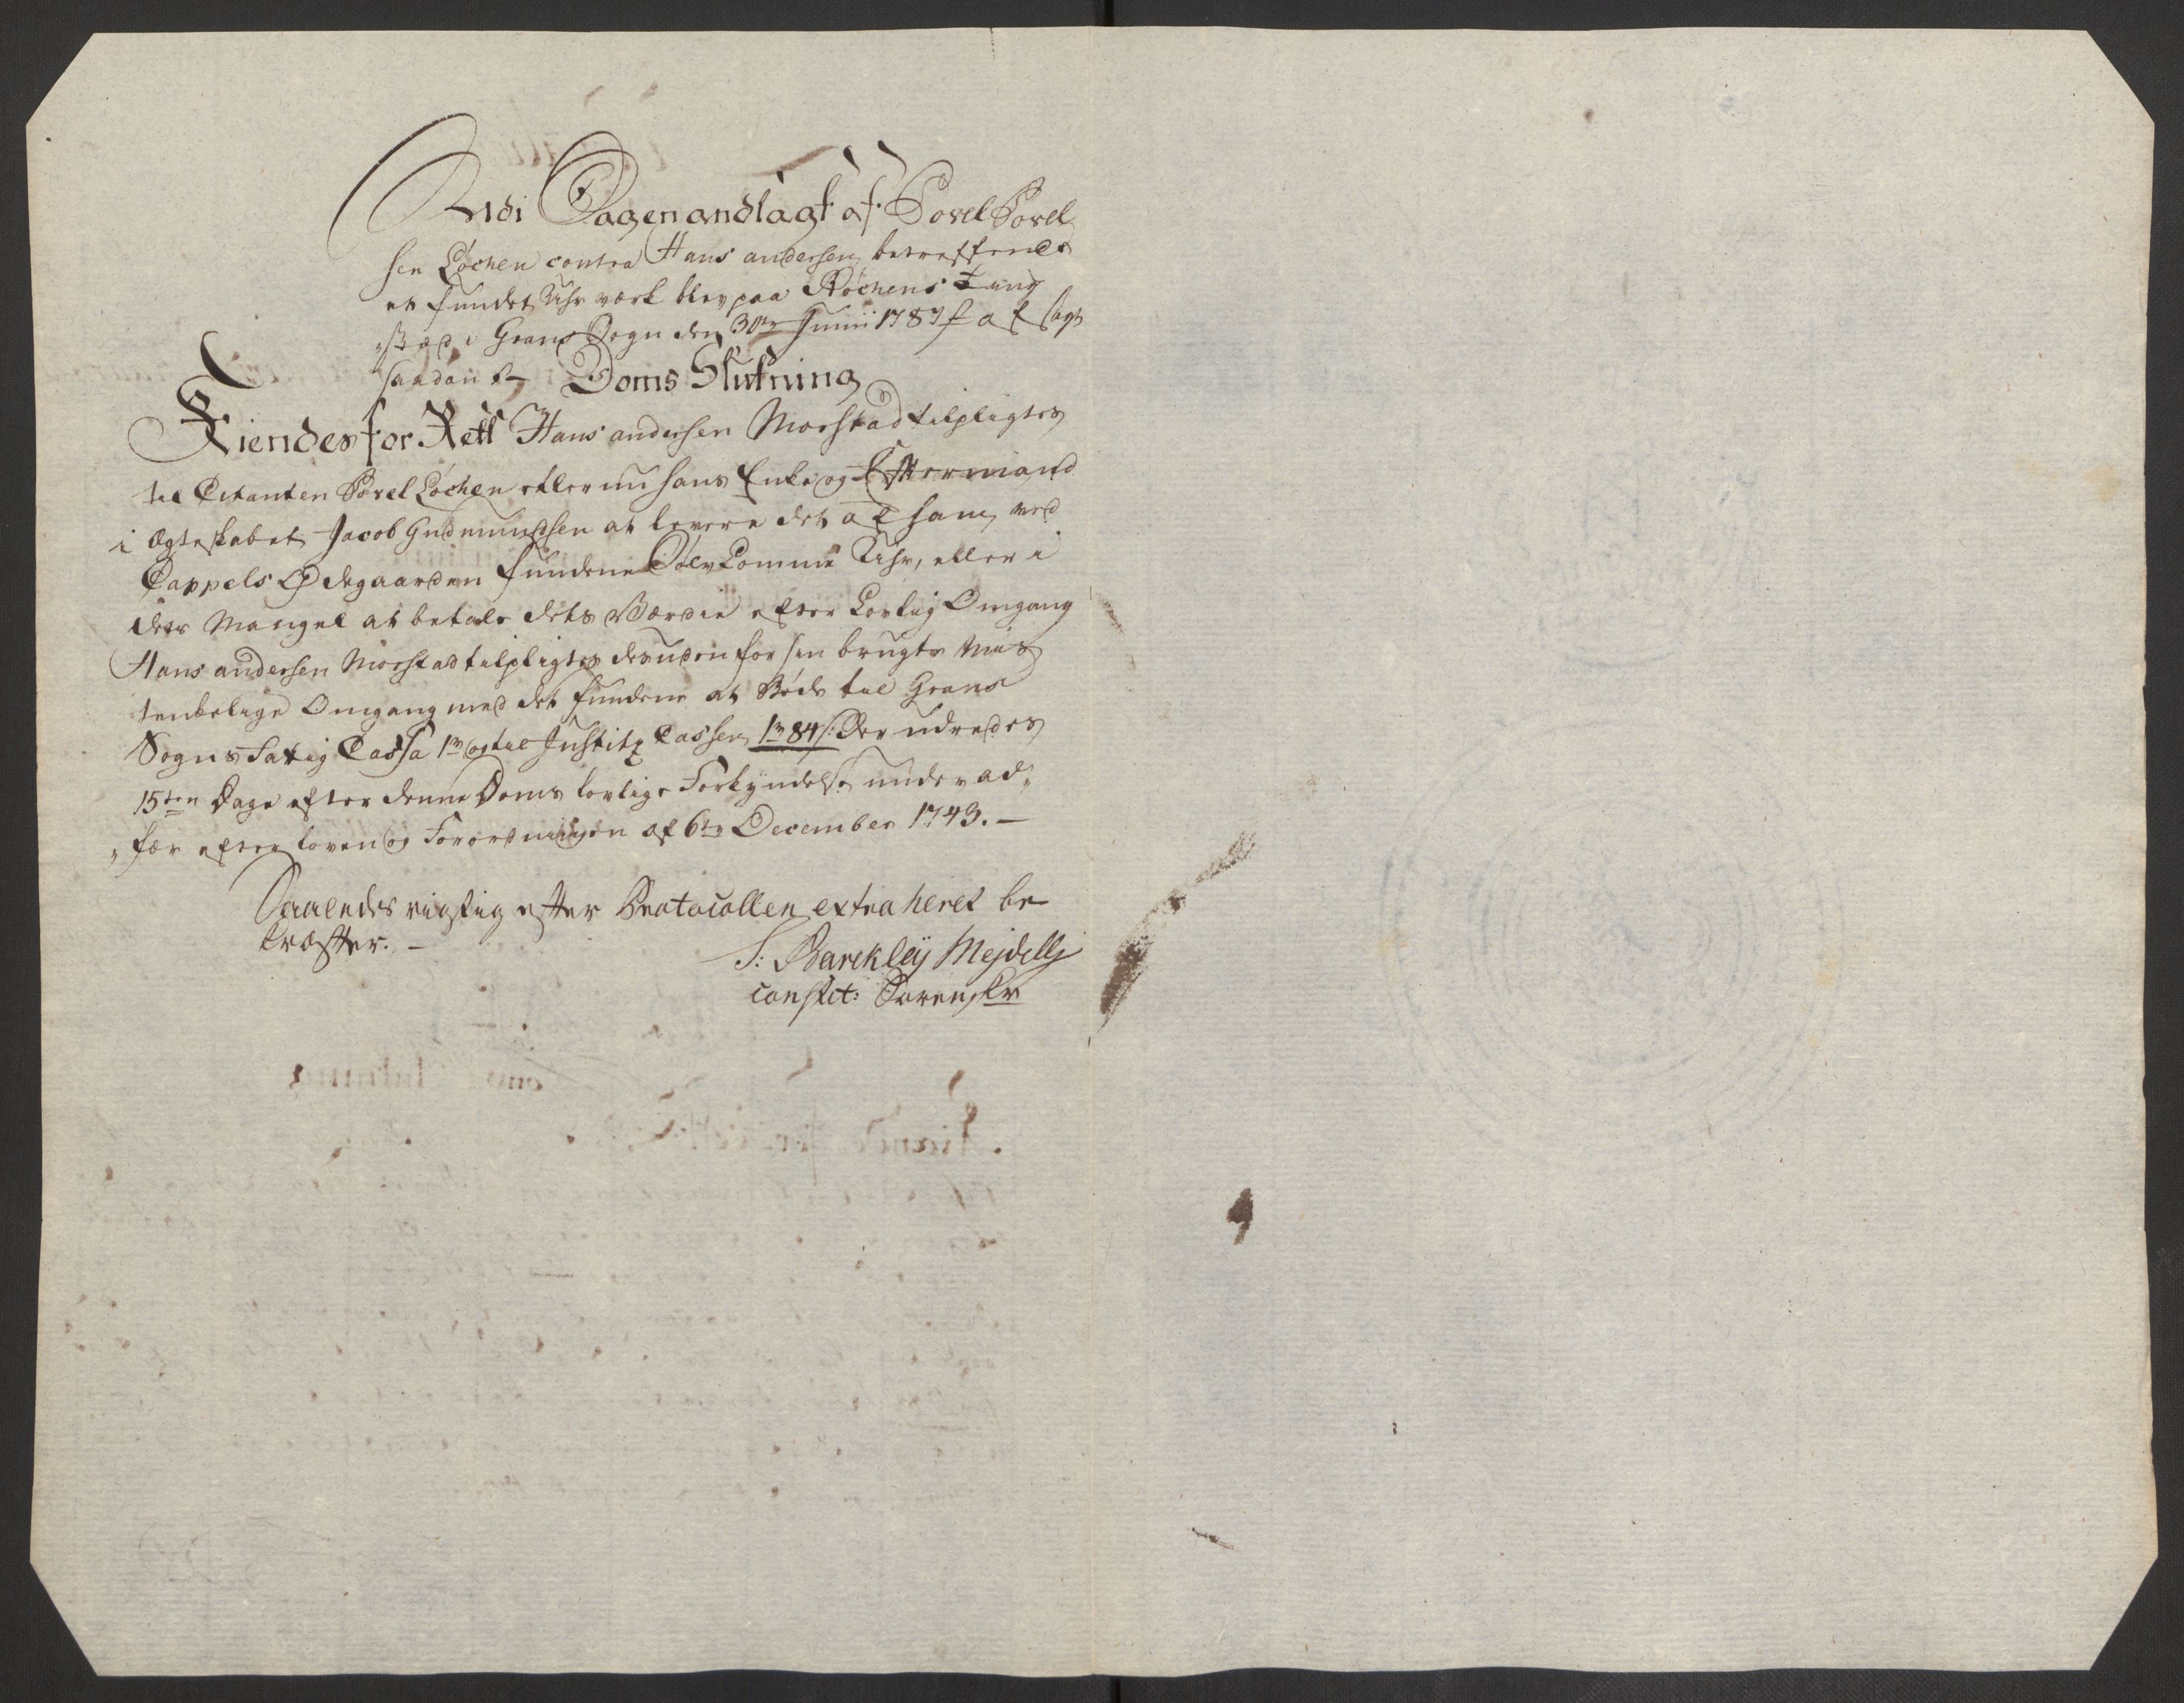 Udi Sagen anlagt af Povel Povel
sen Løchen contra Hans andersen betreffende
et fundet Uhrværk blev paa Røchens Ting
„stæd i Grans Sogn den 30te Junii 1787 afsagt
saadan Doms Slutning
Kiendes for Rett Hans andersen Morstad tilpligtes
til Citanten Povel Løchen eller nu hans Enke og Eftermand
i Ægteskabet Jacob Gudmundsen at levere det af ham ved
Cappels Ødegaarden fundene Sølv Lomme Uhr, eller i
dets Mangel at betale dets Værdie efter Lovlig Omgang
Hans andersen Morstad tilpligtes desuden for sin brugte Mis
tenkelige Omgang med det fundene at Bøde til Grans
Sogns Fattig Cassa 1 rd og til Justitz Cassen 1 rd 84 s: Der udredes
15ten Dage efter denne Doms lovlige Forkyndelse under ad„
„fær efter loven og Forordningen af 6te December 1743. —
Saaledes rigtig efter Protocollen extraheret be
kræfter. —
S: Barckleÿ Mejdell
constit: Sorenskr